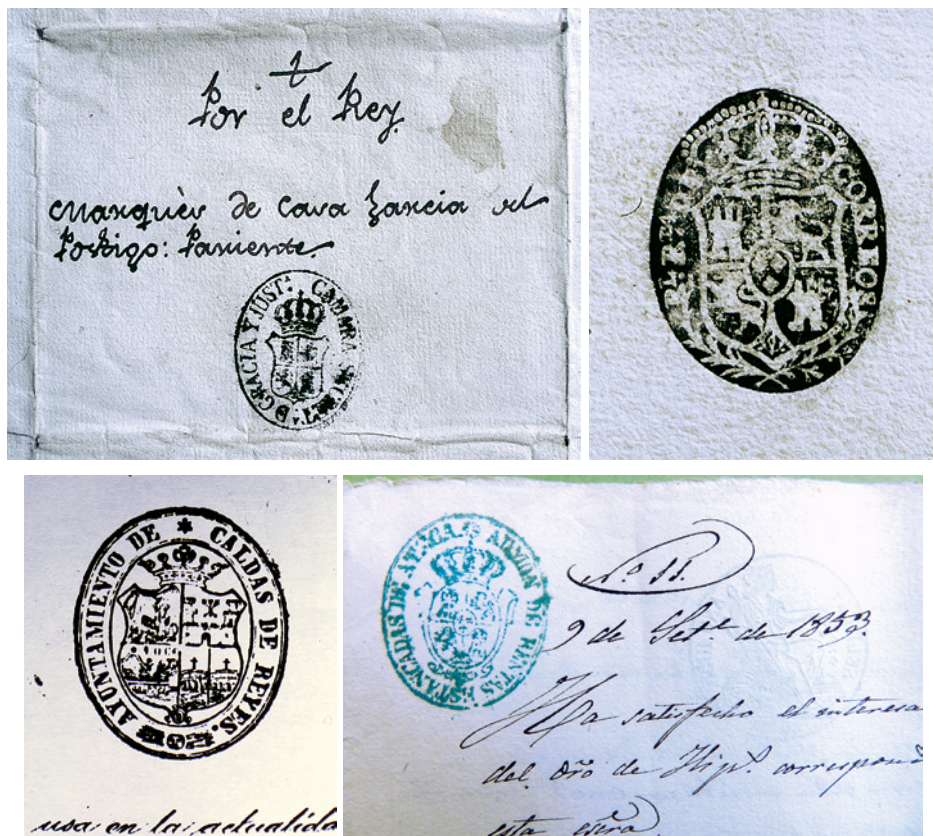 Por el Rey
Marquès de Casa Garcia el
Postigo: Pariente.
CAMARA SECRET.ª D GRACIA Y JUST.ª
RENTA DE CORREOS
AYUNTAMIENTO DE * CALDAS DE REYES.
usa en la actualida
ADMON DE RENTAS ESTANCADAS DE ATECA.
Nº 11.
9 de Set.e de 1853.
Ha satisfecho el interesa
del dro de Hip.s correspond
esta escra